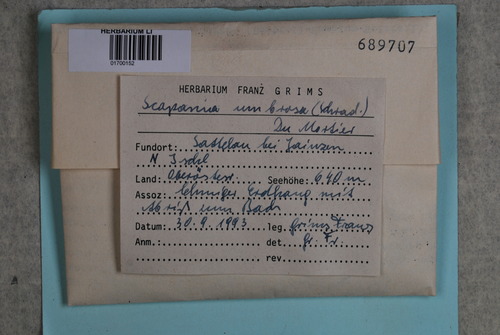 HERBARIUM LI
01700152
689707
HERBARIUM FRANZ GRIMS
Scapania umbrosa (Schrad.)
Du Mortier
Fundort: Sattelau bei Jainzen
N Ischl
Land: Oberösterr. Seehöhe: 640 m
Assoz: lehmiger Erdhang mit
zum Bach
Datum: 30.9.1993 leg. Grims Franz
Anm.: det. Gr. Fr.
rev.